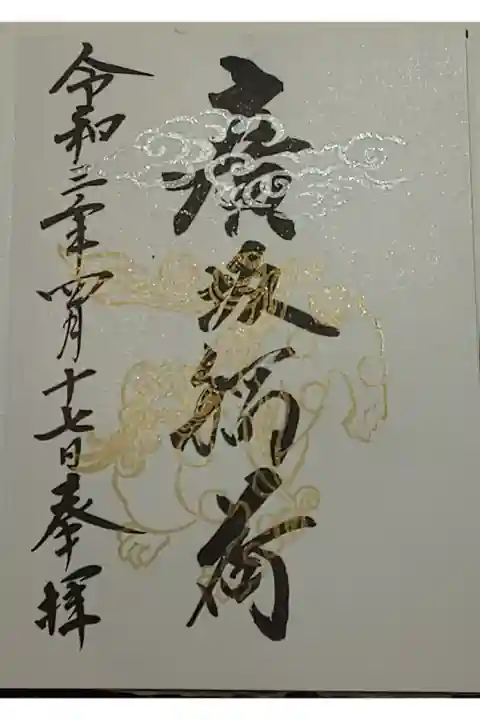 廣尾稲荷
令和三年四月十七日奉拝